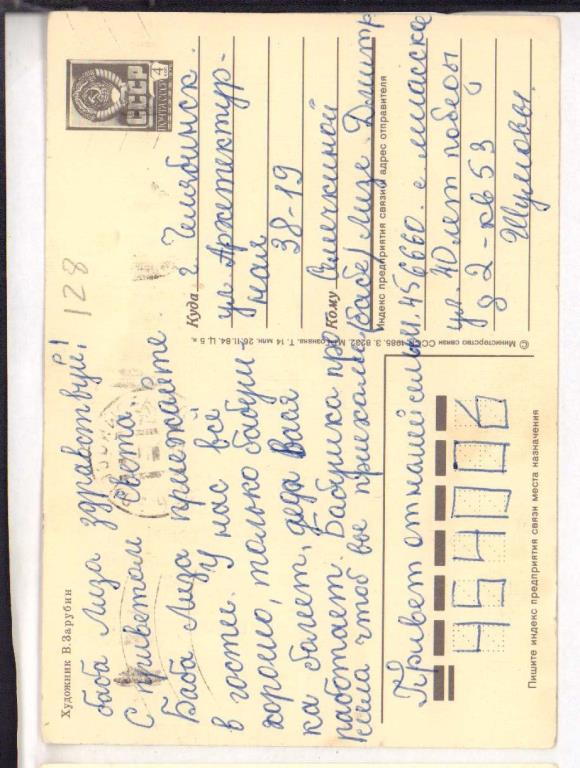 Художник В.Зарубин
баба лиза здравствуй!
С приветом Света.
Баба Лиза приезжайте
в гости. У нас всё
хорошо, только бабуш-
ка болеет, деда Вася
работает. Бабушка пр
чтоб вы приехали
Привет от нашей семьи.
128
СССР
ПОЧТА СССР
4
Куда г Челябинск.
ул. Архетектур-
ная
38-19
Кому
(бабе) Лизе. Дмитр
Индекс предприятия связи и адрес отправителя
456660. с миасское
ул. 40 лет победы
д 2-кв 53
Шумовы.
© Министерство связи СССР. 1985. З. 8232. МПФ Гознака. Т. 14 млн. 26.11.84. Ц. 5 к.
454006
Пишите индекс предприятия связи места назначения